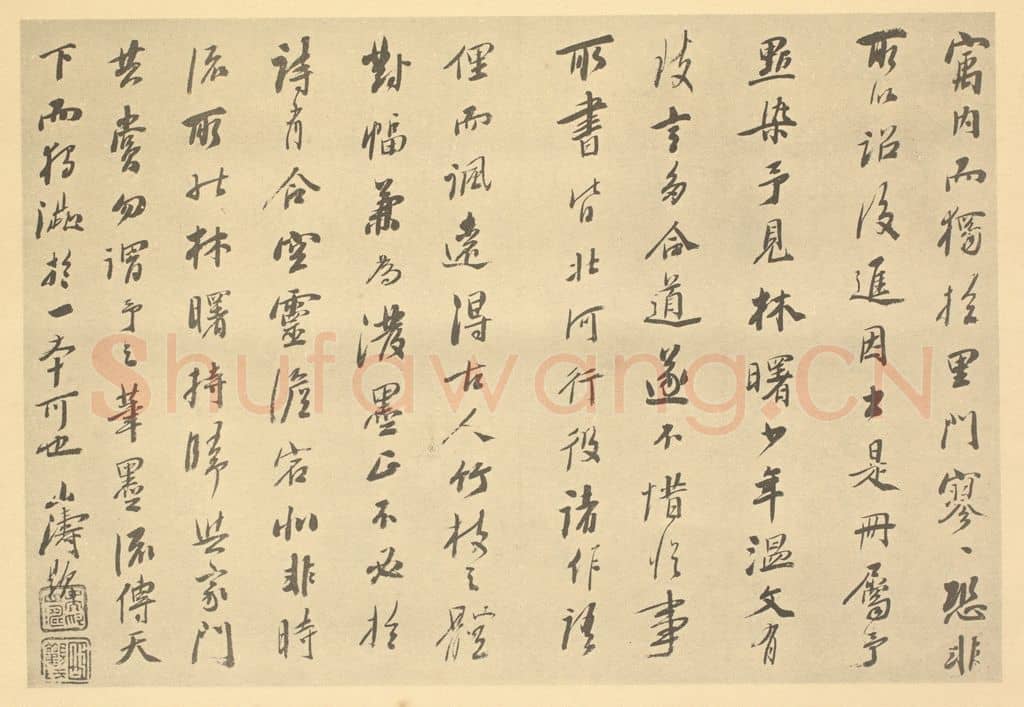 寓内而獨於里門寥〻恐非
所以詔後進因出是冊屬予
點染予見林曙少年温文有
致言多合道遂不惜從事
所書皆北河行役諸作語
俚而諷遠得古人竹枝之體
對幅兼為潑墨正不必於
詩肖合空靈澹宕似非時
流所能林曙持歸與家門
共賞勿謂予之筆墨流傳天
下而獨澁於一本可也 山濤題
Shufawang.CN